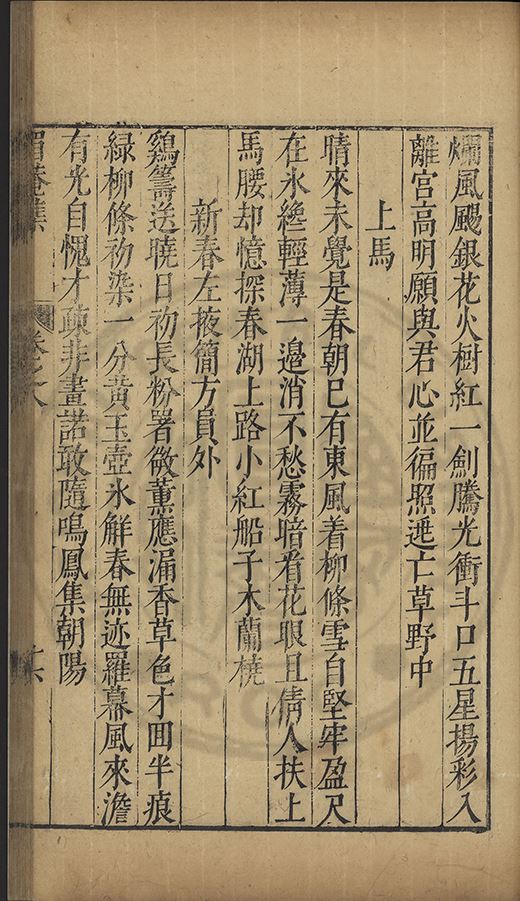 爛風颺銀花火樹紅一劍騰光衝斗口五星揚彩入
離宮高明願與君心並徧照逃亡草野中
上馬
晴來未覺是春朝已有東風着柳條雪自堅牢盈尺
在氷絶輕薄一邉消不愁霧暗看花眼且倩人扶上
馬腰却憶探春湖上路小紅船子木蘭橈
新春左掖簡方員外
鷄籌送曉日初長粉署微薰應漏香草色才囬半痕
綠柳條初染一分黄玉壺氷解春無迹羅幕風來澹
有光自愧才疎非畫諾敢隨鳴鳳集朝陽
眉菴集
卷之八